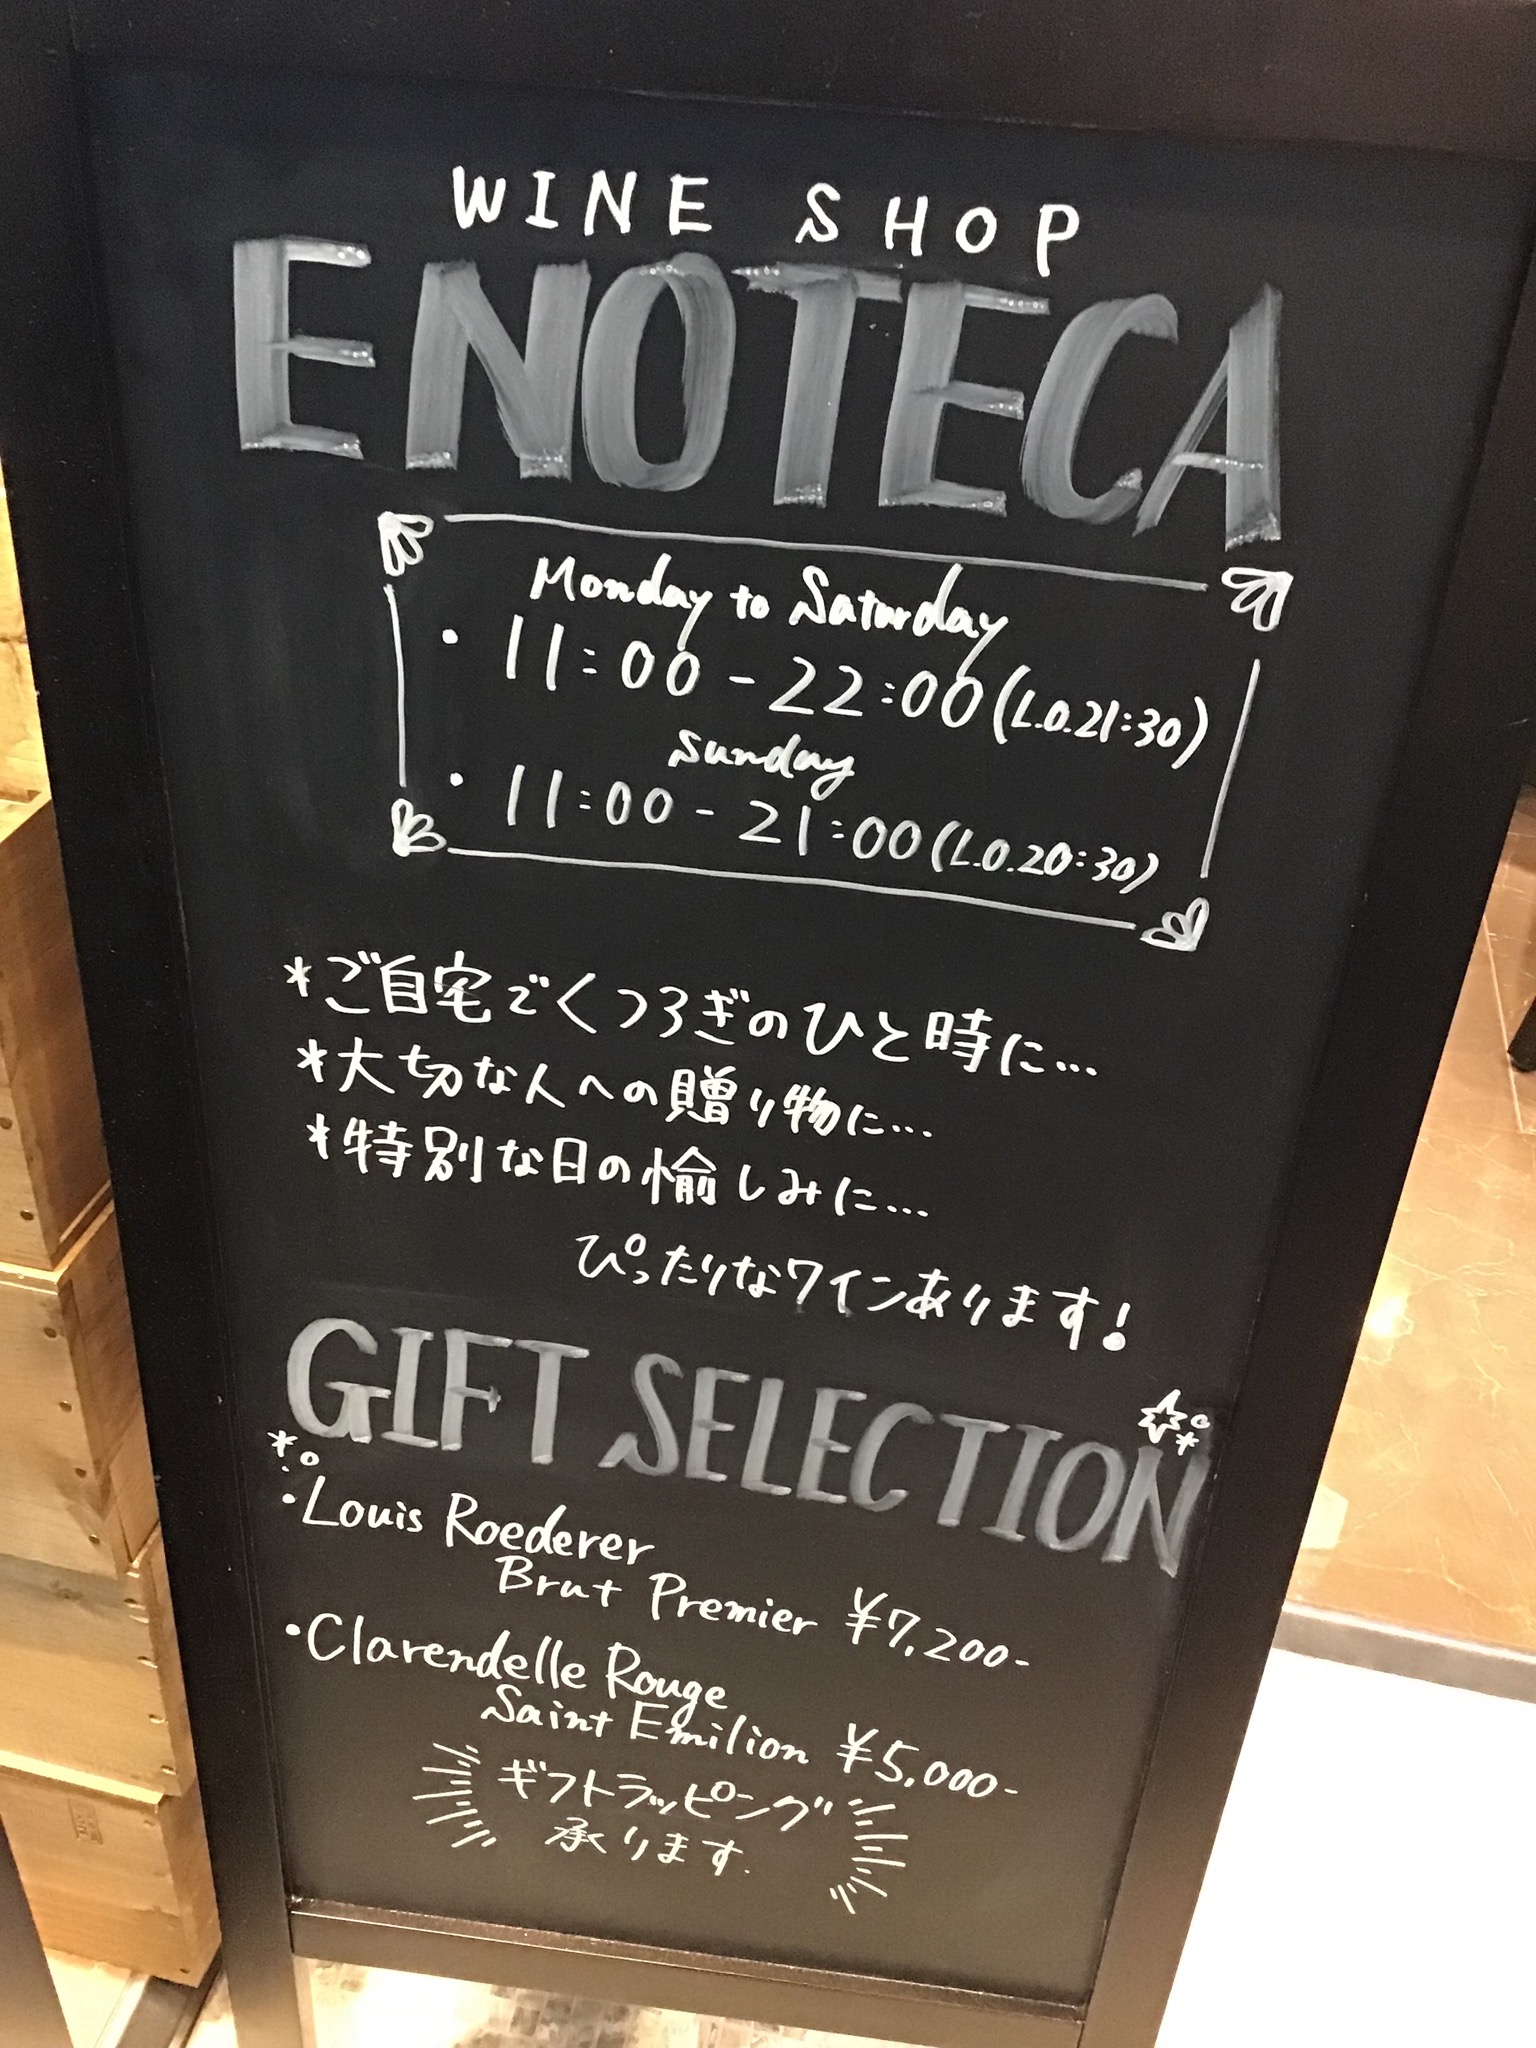 WINE SHOP
ENOTECA
Monday to Saturday
・11:00-22:00(L.O.21:30)
Sunday
・11:00-21:00(L.O.20:30)
*ご自宅でくつろぎのひと時に…
*大切な人への贈り物に…
*特別な日の愉しみに…
ぴったりなワインあります!
GIFT SELECTION
・Louis Roederer
Brut Premier ¥7,200-
・Clarendelle Rouge
Saint Emilion ¥5,000-
ギフトラッピング
承ります.